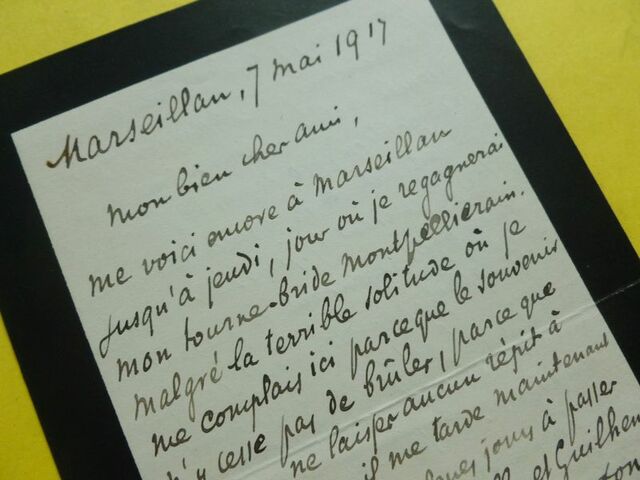 Marseillan, 7 mai 1917
mon bien cher ami,
me voici encore à Marseillan
jusqu'à jeudi, jour où je regagnerai
mon tourne-bride montpelliérain.
malgré la terrible solitude où je
me complais ici parceque le souvenir
n'y cesse pas de brûler, parce que
ne laisser aucun répit à
il me tarde maintenant
jours à passer
et Guilhem